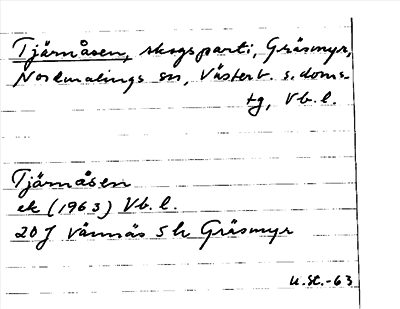 Tjärnåsen, skogsparti, Gräsmyr,
Nordmalings sn, Västerb. s. doms-
tg, Vb. l.
Tjärnåsen
ek (1963) Vb. l.
20 J Vännäs S h Gräsmyr
U. St. -63